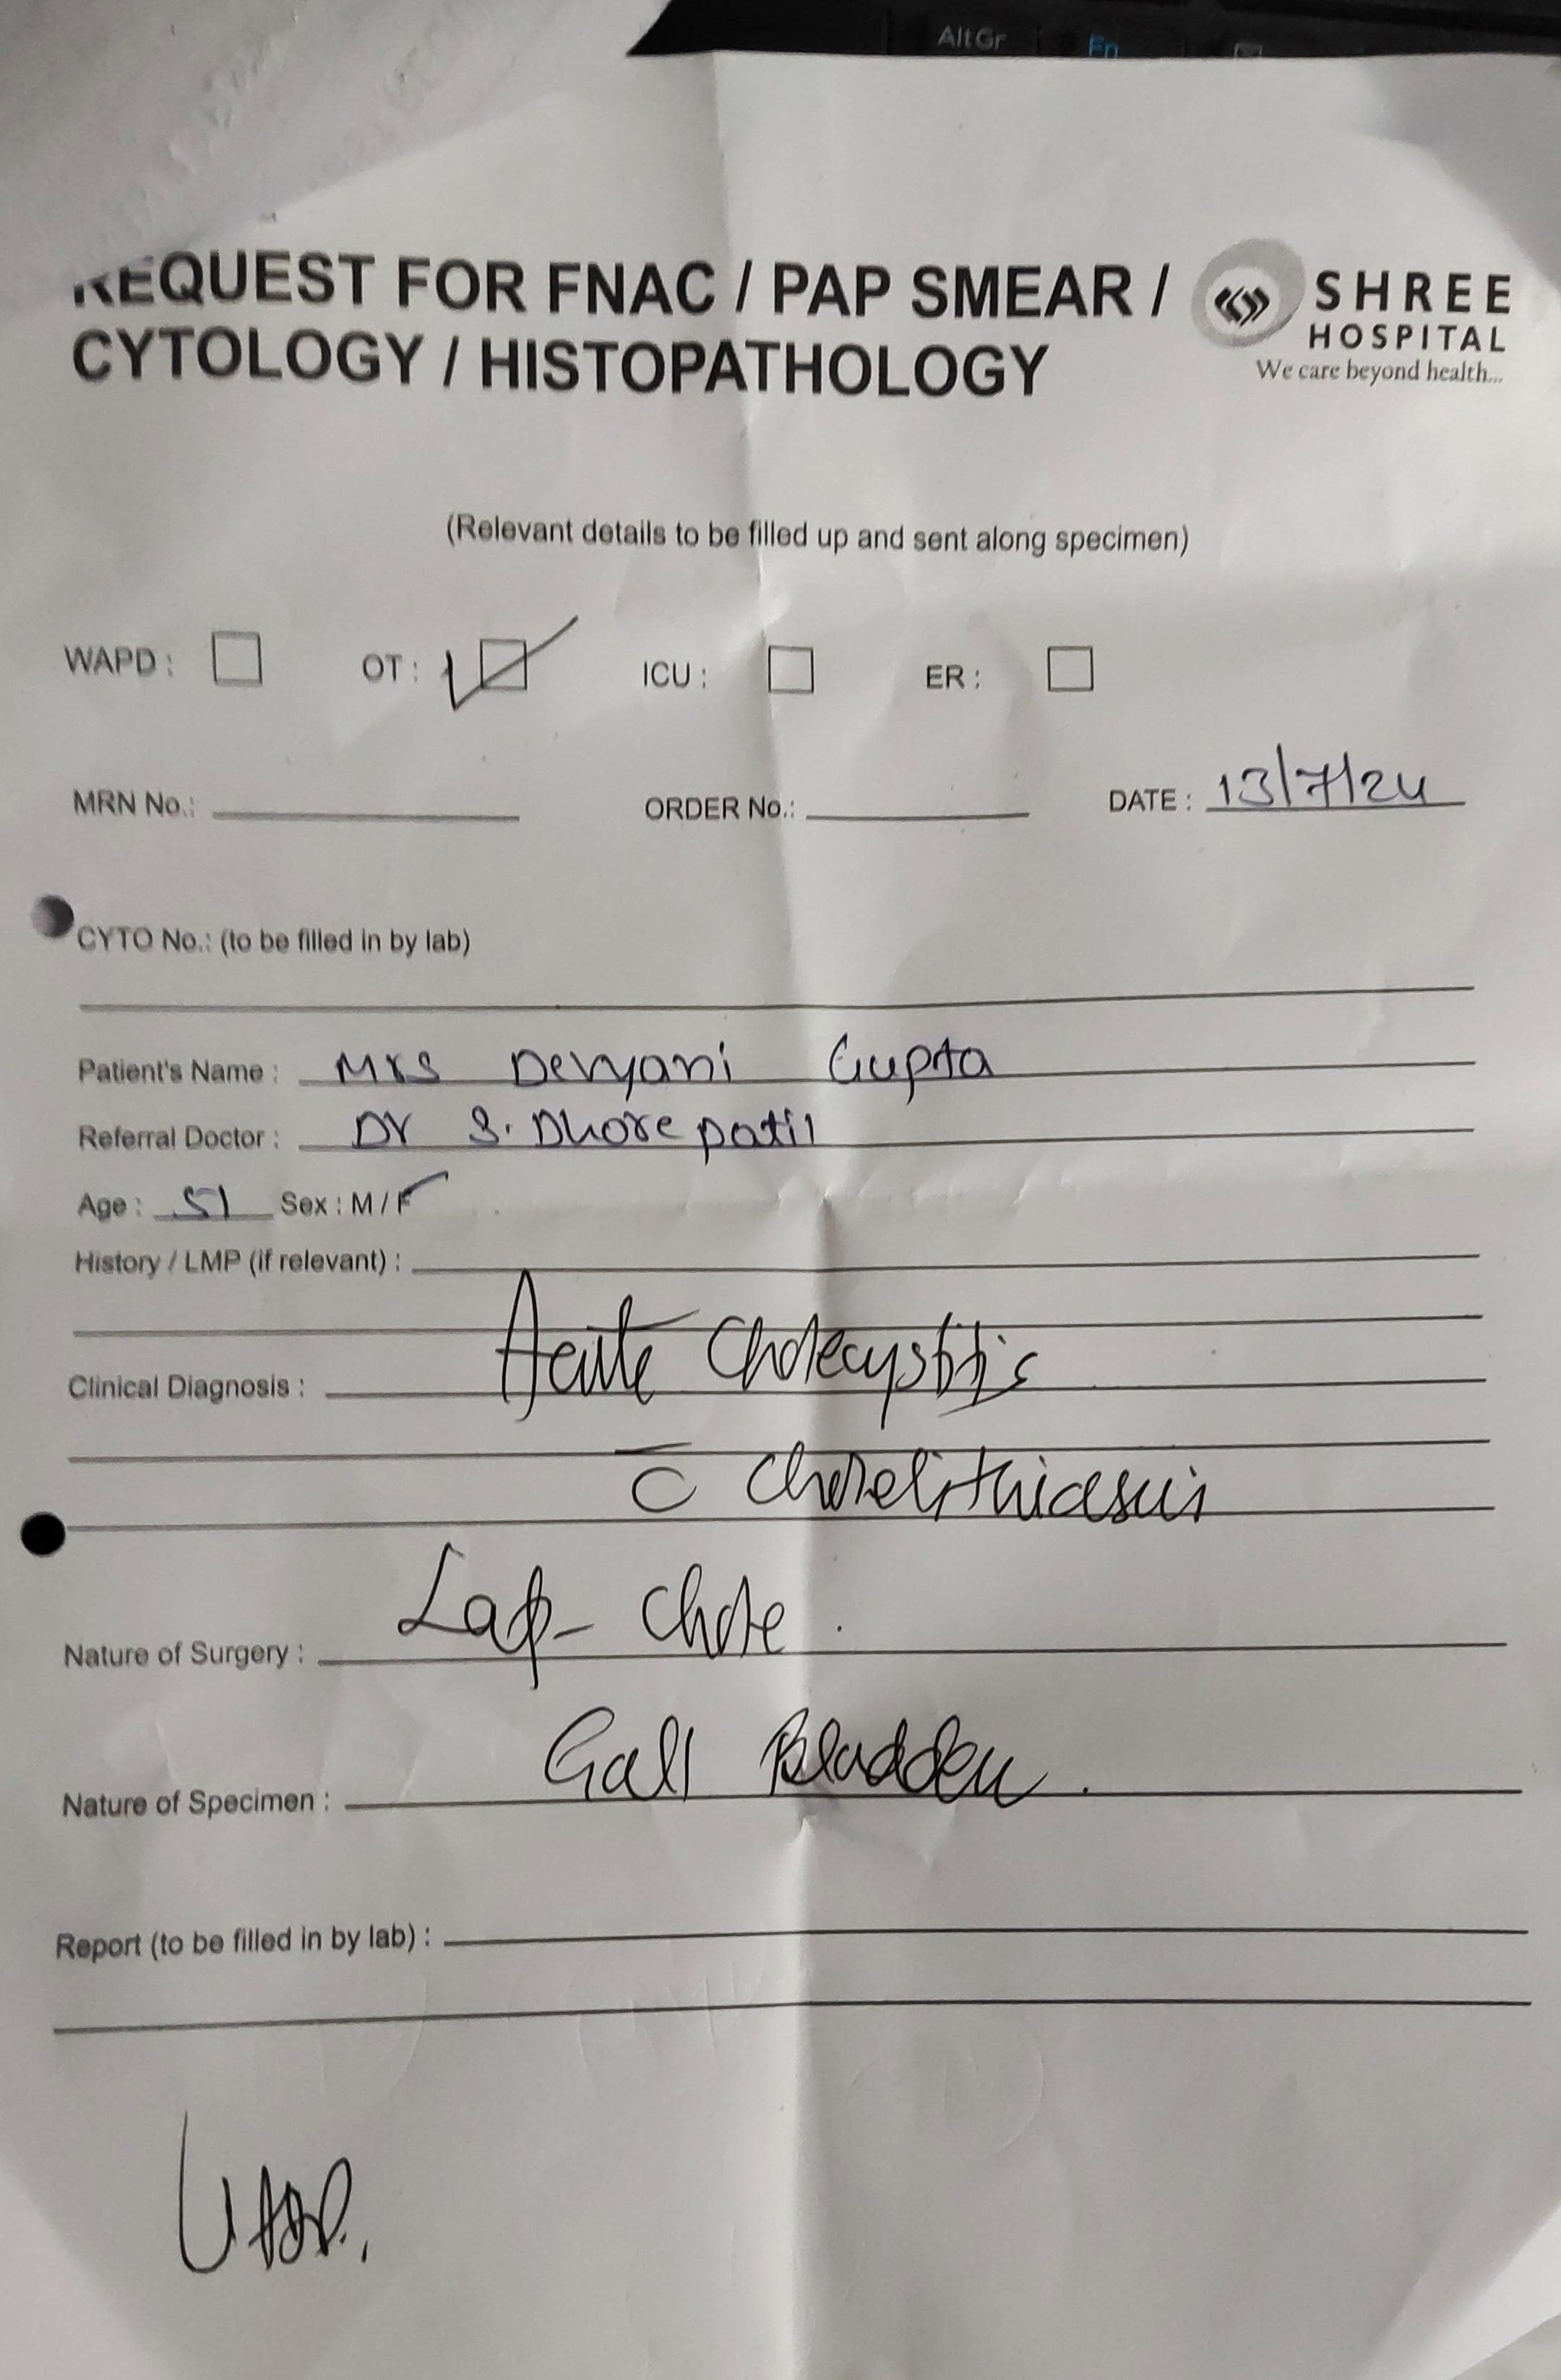 AltGr Fn
REQUEST FOR FNAC / PAP SMEAR /
CYTOLOGY / HISTOPATHOLOGY
SHREE
HOSPITAL
We care beyond health...
(Relevant details to be filled up and sent along specimen)
WAPD : OT : ICU : ER :
MRN No.: ORDER No.: DATE : 13/7/24
CYTO No.: (to be filled in by lab)
Patient's Name : Mrs Devyani Gupta
Referral Doctor : Dr S. Dhore patil
Age : 51 Sex : M / F
History / LMP (if relevant) :
Clinical Diagnosis : Acute Cholecystitis
c̄ Cholelithiasis
Nature of Surgery : Lap- Chole.
Nature of Specimen : Gall Bladder.
Report (to be filled in by lab) :